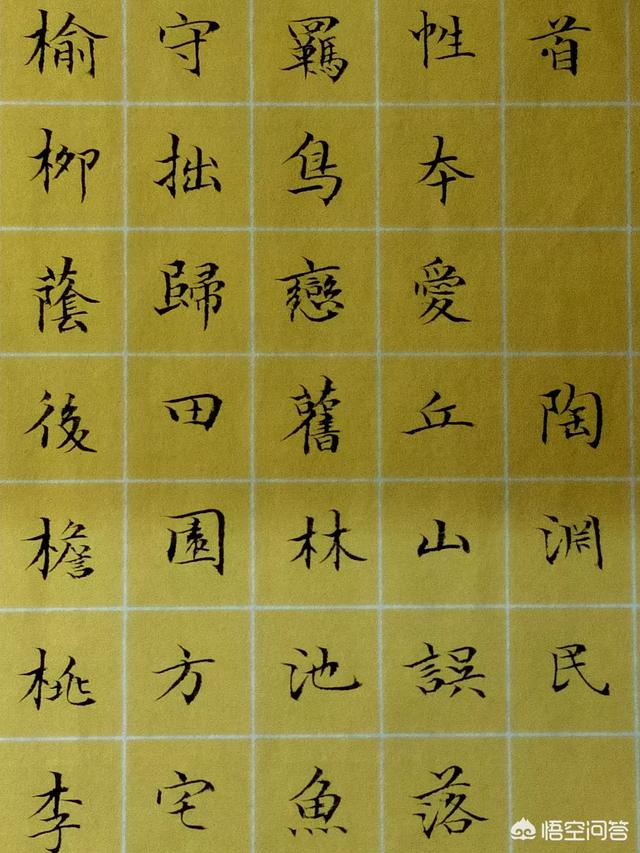 首陶淵民
性本愛丘山誤落
羈鳥戀舊林池魚
守拙歸田園方宅
榆柳蔭後檐桃李
悟空问答